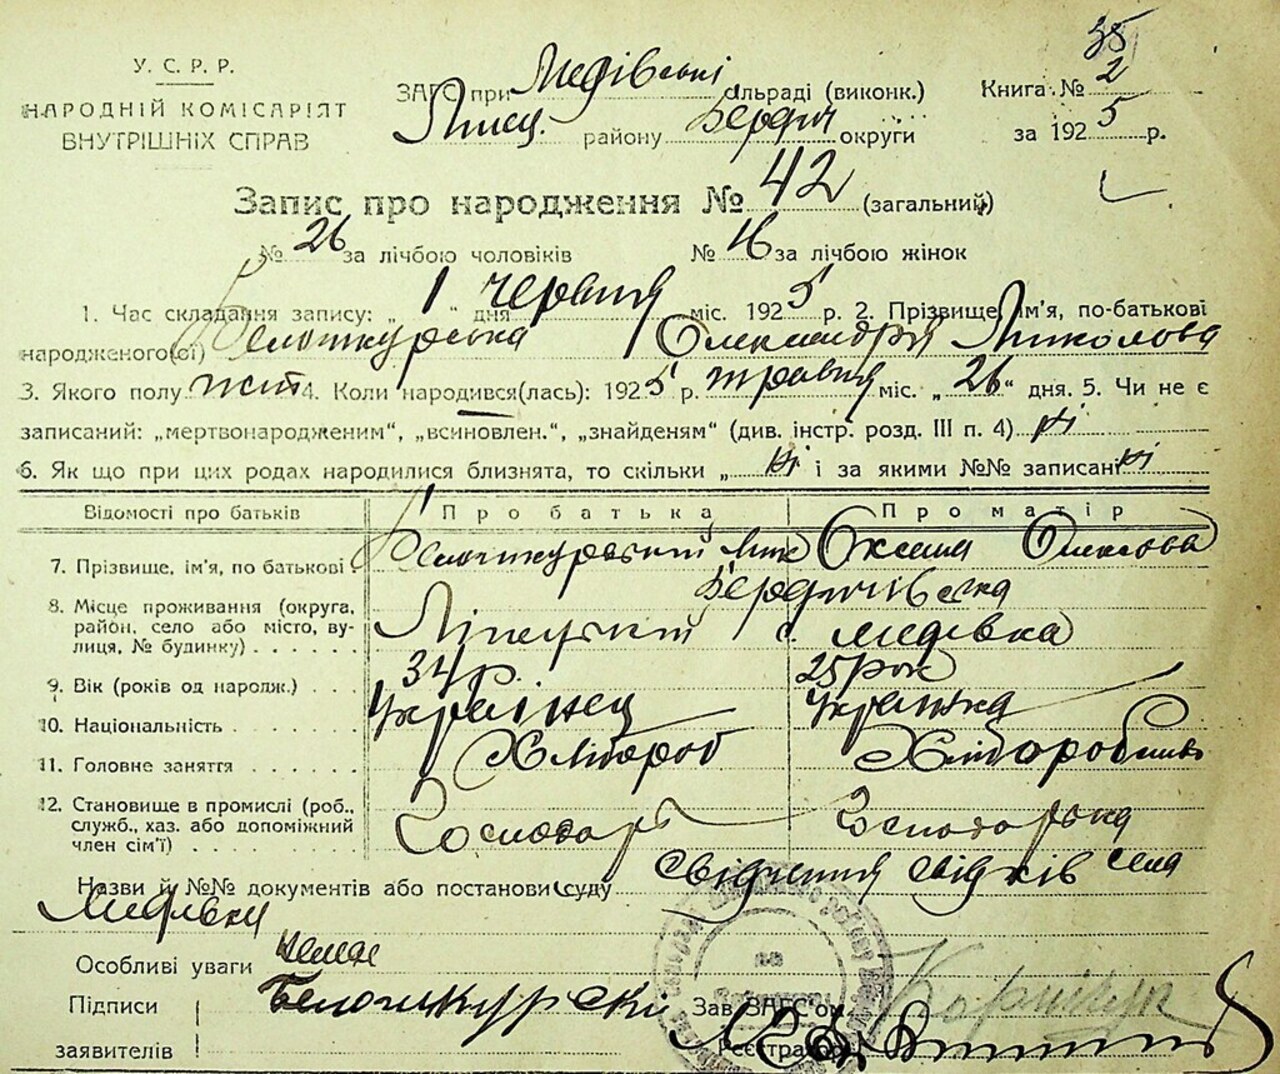 35
У. С. Р. Р.
НАРОДНІЙ КОМІСАРІЯТ
ВНУТРІШНІХ СПРАВ
ЗАГС при Медівські сільраді (виконк.) Книга № 2
Липец. району Бердич округи за 1925 р.
Запис про народження № 42 (загальний)
№ 26 за лічбою чоловіків № 16 за лічбою жінок
1. Час складання запису: „ 1 “ дня червня міс. 1925 р. 2. Прізвище, ім'я, по-батькові
народженого(ої) Белошкурська Олександра Миколова
3. Якого полу жін 4. Коли народився(лась): 1925 р. травня міс. „ 26 “ дня. 5. Чи не є
записаний: „мертвонародженим“, „всиновлен.“, „знайденям“ (див. інстр. розд. III п. 4) ні
6. Як що при цих родах народилися близнята, то скільки „ ні і за якими №№ записані ні
Відомості про батьків Про батька Про матір
7. Прізвище, ім'я, по батькові Белошкурський Мик Оксана Олексова
8. Місце проживання (округа, Бердичівська
район, село або місто, ву- Ліпецький с. Медівка
лиця, № будинку)
9. Вік (років од народж.) 34 р. 25 рок
10. Національність Українец Українка
11. Головне заняття Хлібороб Хліборобство
12. Становище в промислі (роб., Господарь Господарька
служб., хаз. або допоміжний
член сім'ї)
Назви й №№ документів або постанови суду свідчення свідків села
Медівки
Особливі уваги немає
Підписи Белошкурскі Зав. ЗАГС'ом
заявителів Реєстратор